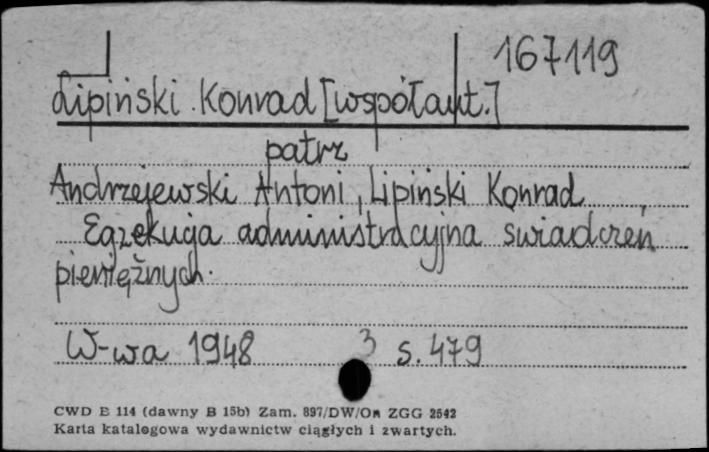 167119
Lipiński Konrad [współaut.]
patrz
Andrzejewski Antoni, Lipiński Konrad
Egzekucja administracyjna świadczeń
pieniężnych.
W-wa 1948 3 s. 479
CWD E 114 (dawny B 15b) Zam. 897/DW/On ZGG 2542
Karta katalogowa wydawnictw ciągłych i zwartych.